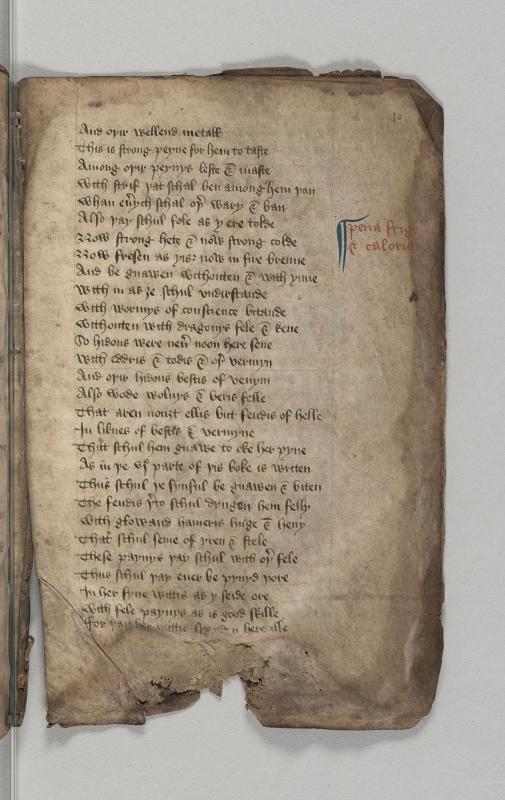 And oþir wellend metall
This is strong peyne for hem to taste
Among oþir peynys leste & maste
With strif þat schal ben among hem þan
Whan eu̅ych schal oþ̛ wary & ban
Also þay schul fole as y ere tolde
Now strong hete & now strong colde
Now fresen as yis: now in fire brenne
And be gnawen withouten & with ynne
With in as ȝe schul vndirstande
With wormys of conscience bitande
Withouten with dragonys fele & kene
So hidous were neu̅ noon here sene
With eddris & todis & oþ̛ vermyn
And oþir hidous bestis of venym
Also wode woluys & beris felle
That aren nouȝt ellis but fendis of helle
In liknes of bestis & vermyne
That schul hem gnawe to eke her pyne
As in þe parte of þis boke is writen
Thus schul þe synful be gnawen & biten
The fendis þ̛to schul dyngen hem felly
With glowand hameris huge & heuy
That schul seme of yren & stele
These paynys þay schul with oþ̛ fele
Thus schul þay euer be pynyd þore
In her fyue wittis as y seide ore
With fele paynys as is good skille
For þay her wittis here ille
pena frig
& caloris